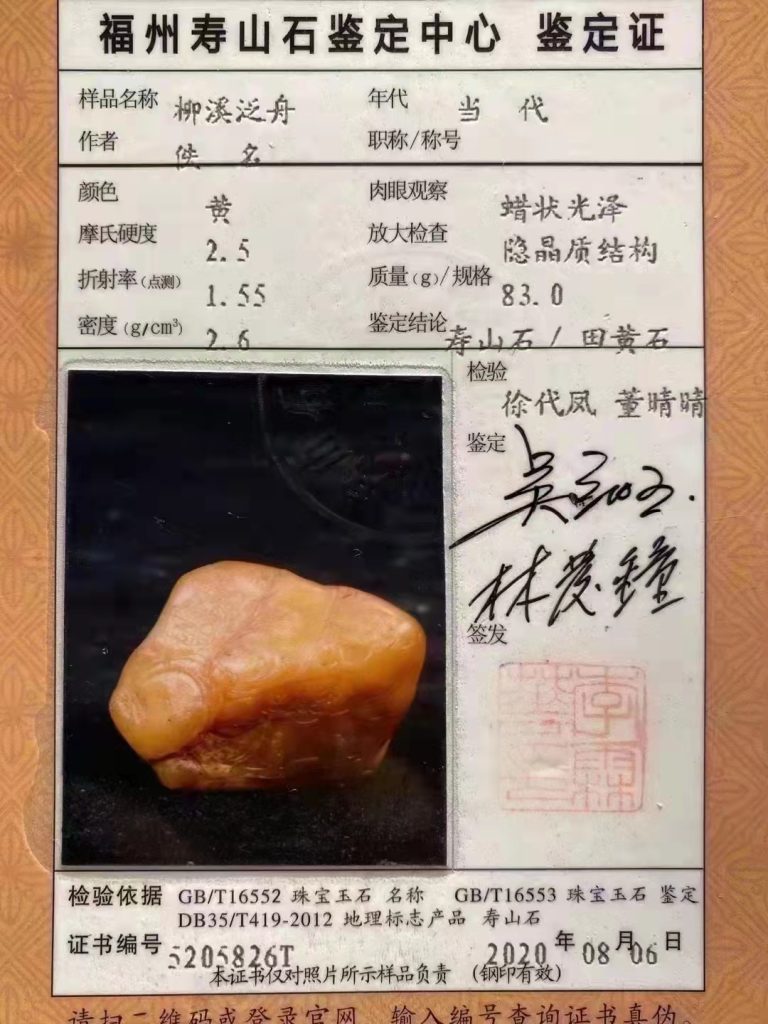 福州寿山石鉴定中心 鉴定证
样品名称 柳溪泛舟 年代 当 代
作者 佚 名 职称/称号
颜色 黄 肉眼观察 蜡状光泽
摩氏硬度 2.5 放大检查 隐晶质结构
折射率(点测) 1.55 质量(g)/规格 83.0
密度(g/cm³) 2.6 鉴定结论 寿山石/田黄石
检验
徐代凤 董晴晴
鉴定
签发
检验依据 GB/T16552 珠宝玉石 名称 GB/T16553 珠宝玉石 鉴定
DB35/T419-2012 地理标志产品 寿山石
证书编号 5205826T 2020年08月06日
本证书仅对照片所示样品负责 (钢印有效)
请扫二维码或登录官网,输入编号查询证书真伪。